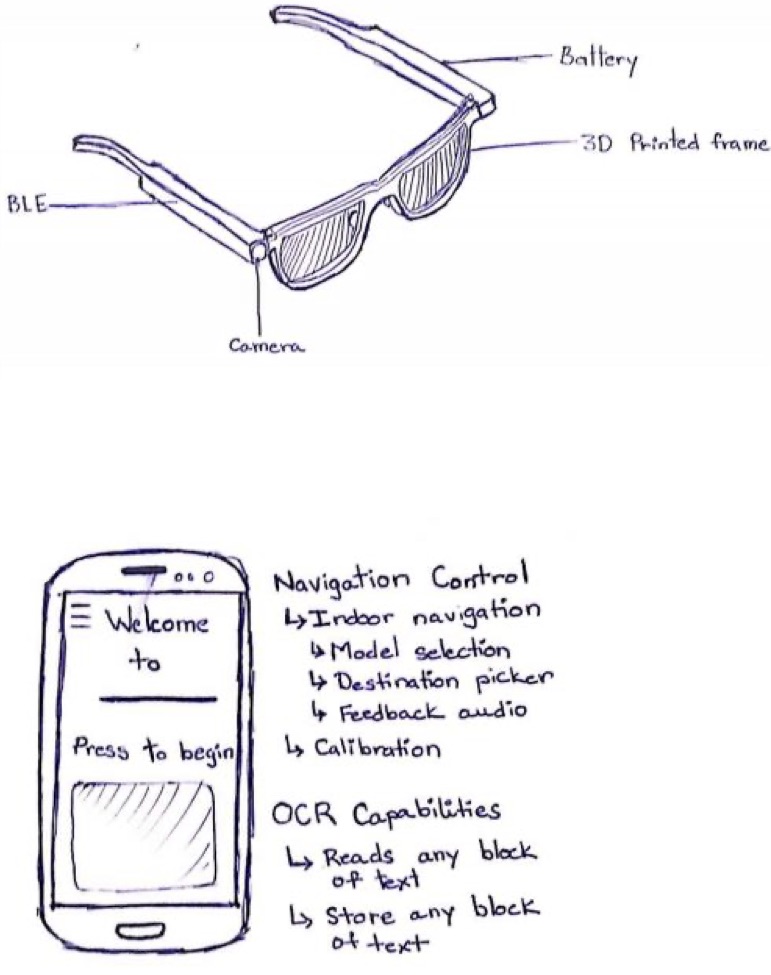 Battery
3D Printed frame
BLE
Camera
Welcome
to
Press to begin
Navigation Control
↳ Indoor navigation
↳ Model selection
↳ Destination picker
↳ Feedback audio
↳ Calibration
OCR Capabilities
↳ Reads any block
of text
↳ Store any block
of text